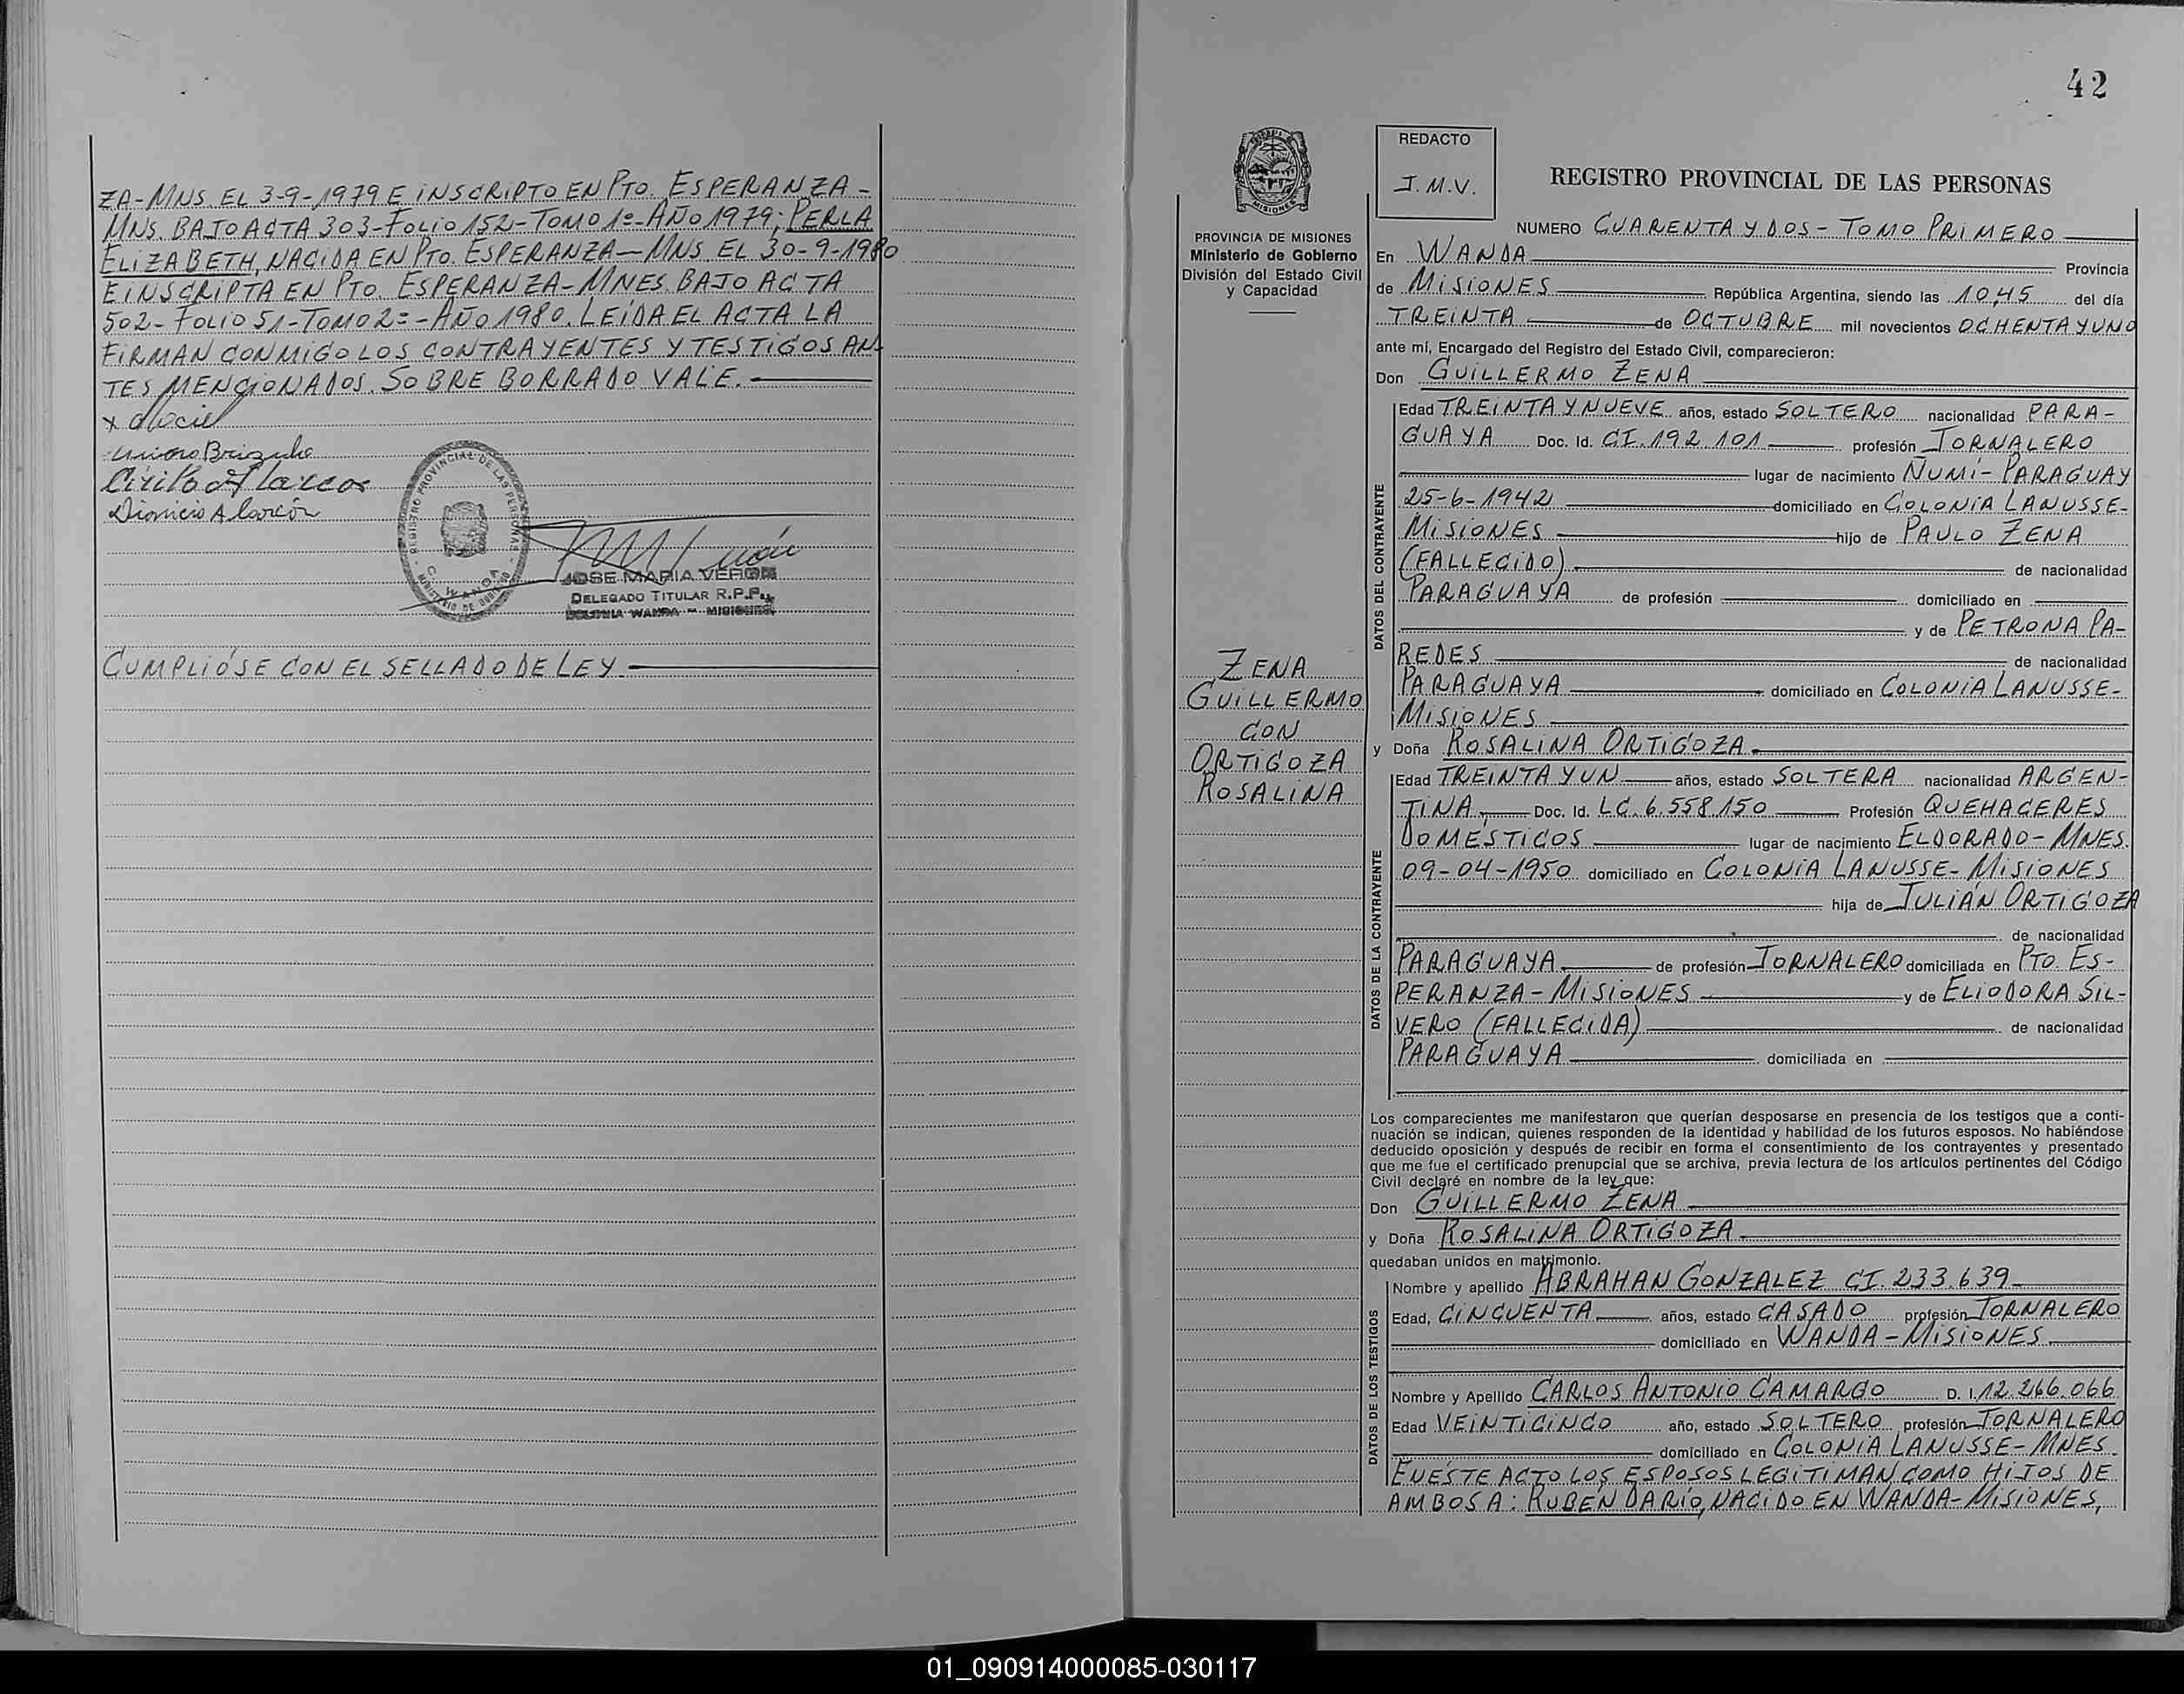 ZA-MNS. EL 3-9-1979 E INSCRIPTO EN PTO. ESPERANZA-
MNS. BAJO ACTA 303-FOLIO 152-TOMO 1º-AÑO 1979; PERLA
ELIZABETH, NACIDA EN PTO. ESPERANZA-MNS. EL 30-9-1980
E INSCRIPTA EN PTO. ESPERANZA-MNES. BAJO ACTA
502-FOLIO 51-TOMO 2º-AÑO 1980. LEÍDA EL ACTA LA
FIRMAN CONMIGO LOS CONTRAYENTES Y TESTIGOS AN-
TES MENCIONADOS. SOBRE BORRADO VALE.
Cirilo Alarcos
Dionicio Alarcón
REGISTRO PROVINCIAL DE LAS PERSONAS
JOSE MARIA VERON
DELEGADO TITULAR R.P.P.
COLONIA WANDA - MISIONES
CUMPLIÓSE CON EL SELLADO DE LEY.
42
MISIONES
PROVINCIA DE MISIONES
Ministerio de Gobierno
División del Estado Civil
y Capacidad
ZENA
GUILLERMO
CON
ORTIGOZA
ROSALINA
REDACTO
J.M.V.
REGISTRO PROVINCIAL DE LAS PERSONAS
NUMERO CUARENTA Y DOS-TOMO PRIMERO
En WANDA Provincia
de MISIONES República Argentina, siendo las 10,45 del día
TREINTA de OCTUBRE mil novecientos OCHENTA Y UNO
ante mí, Encargado del Registro del Estado Civil, comparecieron:
Don GUILLERMO ZENA
DATOS DEL CONTRAYENTE
Edad TREINTA Y NUEVE años, estado SOLTERO nacionalidad PARA-
GUAYA Doc. Id. CI. 192.101 profesión JORNALERO
lugar de nacimiento ÑUMÍ-PARAGUAY
25-6-1942 domiciliado en COLONIA LANUSSE-
MISIONES hijo de PAULO ZENA
(FALLECIDO) de nacionalidad
PARAGUAYA de profesión domiciliado en
y de PETRONA PA-
REDES de nacionalidad
PARAGUAYA domiciliado en COLONIA LANUSSE-
MISIONES
y Doña ROSALINA ORTIGOZA
DATOS DE LA CONTRAYENTE
Edad TREINTA Y UN años, estado SOLTERA nacionalidad ARGEN-
TINA Doc. Id. LC. 6.558.150 Profesión QUEHACERES
DOMÉSTICOS lugar de nacimiento ELDORADO-MNES.
09-04-1950 domiciliado en COLONIA LANUSSE-MISIONES
hija de JULIÁN ORTIGOZA
de nacionalidad
PARAGUAYA de profesión JORNALERO domiciliada en PTO. ES-
PERANZA-MISIONES y de ELIODORA SIL-
VERO (FALLECIDA) de nacionalidad
PARAGUAYA domiciliada en
Los comparecientes me manifestaron que querían desposarse en presencia de los testigos que a conti-
nuación se indican, quienes responden de la identidad y habilidad de los futuros esposos. No habiéndose
deducido oposición y después de recibir en forma el consentimiento de los contrayentes y presentado
que me fue el certificado prenupcial que se archiva, previa lectura de los artículos pertinentes del Código
Civil declaré en nombre de la ley que:
Don GUILLERMO ZENA
y Doña ROSALINA ORTIGOZA
quedaban unidos en matrimonio.
DATOS DE LOS TESTIGOS
Nombre y apellido ABRAHAN GONZALEZ CI. 233.639
Edad, CINCUENTA años, estado CASADO profesión JORNALERO
domiciliado en WANDA-MISIONES
Nombre y Apellido CARLOS ANTONIO CAMARGO D. I. 12.266.066
Edad VEINTICINCO año, estado SOLTERO profesión JORNALERO
domiciliado en COLONIA LANUSSE-MNES.
EN ÉSTE ACTO LOS ESPOSOS LEGITIMAN COMO HIJOS DE
AMBOS A: RUBÉN DARÍO, NACIDO EN WANDA-MISIONES,
01_090914000085-030117